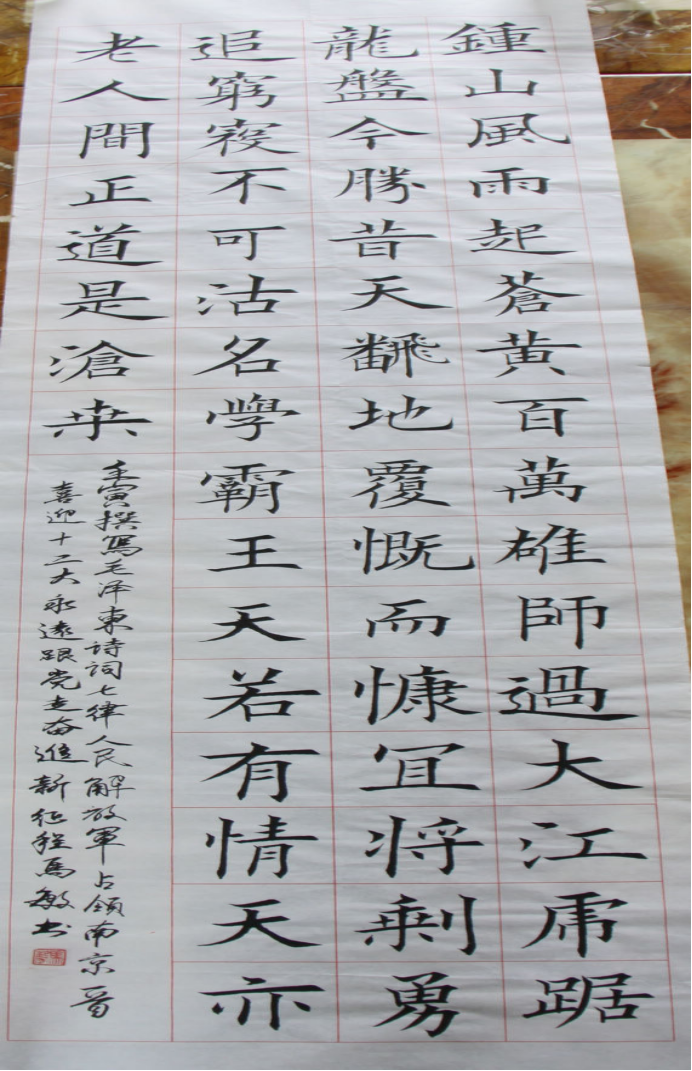 鍾山風雨起蒼黄百萬雄師過大江虎踞
龍盤今勝昔天飜地覆慨而慷冝将剩勇
追窮寇不可沽名學霸王天若有情天亦
老人間正道是滄桒
壬寅撰寫毛泽東诗词七律人民解放軍占领南京晋
喜迎十二大永遠跟党走奋進新征程馬敏书